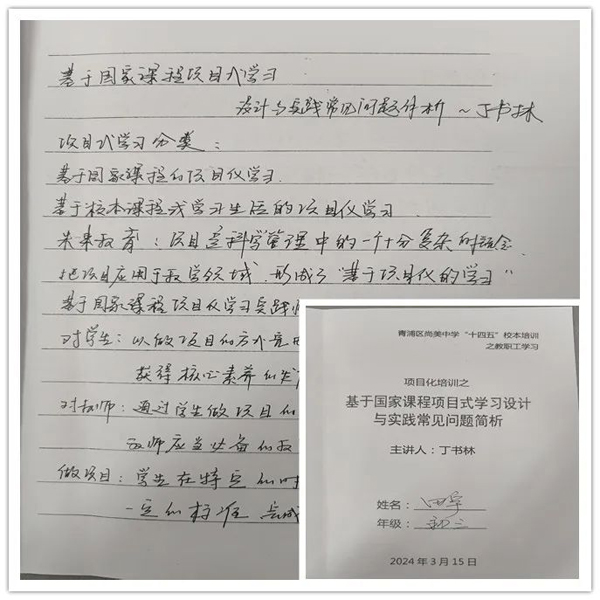 基于国家课程项目式学习
设计与实践常见问题简析 ~丁书林
项目式学习分类：
基于国家课程的项目化学习
基于校本课程或学习生活的项目化学习
未来教育：项目是科学管理中的一个十分复杂的概念
把项目应用于教学领域，形成了"基于项目化的学习"
基于国家课程项目化学习实践
对学生：以做项目的方式完
获得核心素养的
对教师：通过学生做项目的
教师应当必备的
做项目：学生在特定的时
一定的标准
青浦区尚美中学“十四五”校本培训
之教职工学习
项目化培训之
基于国家课程项目式学习设计
与实践常见问题简析
主讲人：丁书林
姓名：
年级：初三
2024年3月15日